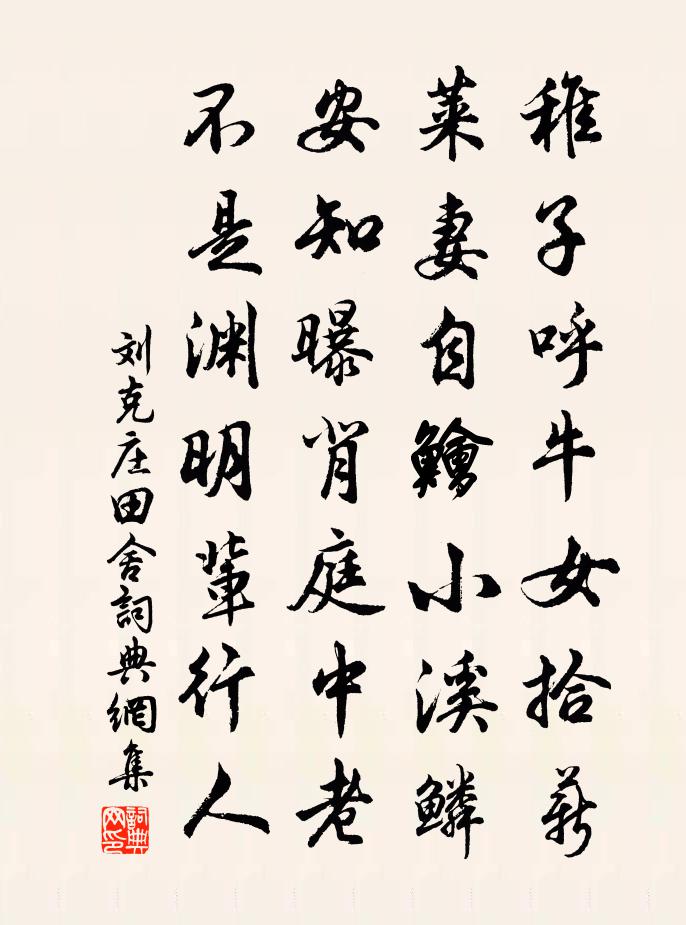 稚子呼牛女拾薪
莱妻自鱠小溪鳞
安知曝背庭中老
不是渊明輩行人
刘克庄田舍詞典網集
詞典
网印